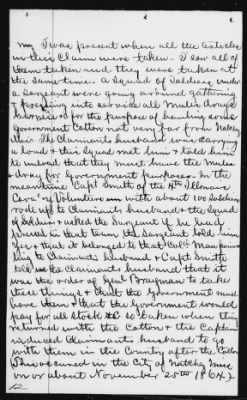 my I was present when all the Articles
in this Claim were taken - I saw all of
them taken and they were taken at
the same time - A Squad of Soldiers under
a Sargeant were going around gathering
& pressing into service all Mules drays
harness &c for the purpose of hauling some
Government Cotton not very far from Natchez
Miss. The Claimants husband was
a load & this Squad met him & told him
to unload that they must have the Mules
& dray for Government purposes. In the
meantime Capt Smith of the 4th Illinois
Cavalry Volunteers with about 100 Soldiers
rode up to Claimants husband & the Squad
of Soldiers asked the Sargeant if he had
pressed in that team, the Sargeant told him
Yes & that it belonged to that Col'd Man
him to Claimants husband & Capt Smith
told Claimants husband that it
was the order of Gen'l Brayman to take
these things & that the Government must
have them & that the Government would
pay for all stock so taken when they
returned with the Cotton & the Captain
induced Claimants husband to go
with them in the Country after the Cotton
This occured in the City of Natchez Miss
on or about November 25th 1864